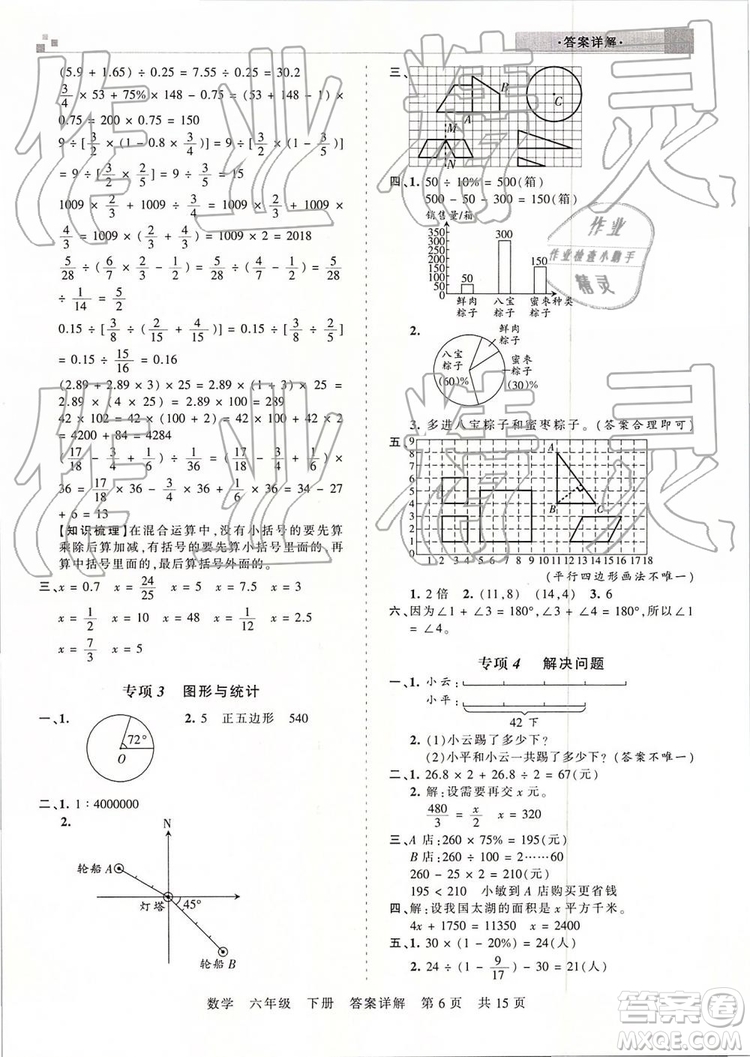 ·答案详解·
(5.9 + 1.65) ÷ 0.25 = 7.55 ÷ 0.25 = 30.2
3/4 × 53 + 75% × 148 - 0.75 = (53 + 148 - 1) ×
0.75 = 200 × 0.75 = 150
9 ÷ [3/2 × (1 - 0.8 × 3/4)] = 9 ÷ [3/2 × (1 - 3/5)]
= 9 ÷ [3/2 × 2/5] = 9 ÷ 3/5 = 15
1009 × 2/3 + 1009 ÷ 3/4 = 1009 × 2/3 + 1009 ×
4/3 = 1009 × (2/3 + 4/3) = 1009 × 2 = 2018
5/28 ÷ (2/7 - 3/14) = 5/28 ÷ (4/14 - 3/14) = 5/28 ÷
1/14 = 5/2
0.15 ÷ [3/8 ÷ (2/15 + 4/15)] = 0.15 ÷ [3/8 ÷ 2/5] =
0.15 ÷ 15/16 = 0.16
(2.89 + 2.89 × 3) × (50 ÷ 2) = (2.89 + 2.89 ×
3) × (4 × 25) ÷ 4 = 2.89 × 100 = 289
42 × 102 = 42 × (100 + 2) = 42 × 100 + 42 × 2
= 4200 + 84 = 4284
(17/18 - 3/4 + 1/6) ÷ 1/36 = (17/18 - 3/4 + 1/6) ×
36 = 17/18 × 36 - 3/4 × 36 + 1/6 × 36 = 34 - 27
+ 6 = 13
【知识梳理】在混合运算中,没有小括号的要先算
乘除后算加减,有括号的要先算小括号里面的,再
算中括号里面的,最后算括号外面的。
三、x = 0.7 x = 24/25 x = 5
x = 1/2 x = 10 x = 48 x = 1/2 x = 2.5
x = 7/3 x = 2
专项 3 图形与统计
一、1. 2. 5 正五边形 540
72°
O
二、1. 1∶4000000
2.
N
轮船 A
灯塔
45°
轮船 B
三、
C
M
N
四、1. 50 ÷ 10% = 500(箱)
500 - 50 - 300 = 150(箱)
销售量/箱
350
300
250
200
150
100
50
0
50
300
150
鲜肉粽子 八宝粽子 蜜枣粽子 种类
2.
鲜肉粽子
八宝粽子 (60)%
蜜枣粽子 (30)%
3. 多进八宝粽子和蜜枣粽子。(答案合理即可)
五、
9
8
7
6
5
4
3
2
1
0 1 2 3 4 5 6 7 8 9 10 11 12 13 14 15 16 17 18
A
B
C
(平行四边形画法不唯一)
1. 2 倍 2. (11,8) (14,4) 3. 6
六、因为∠1 + ∠3 = 180°,∠3 + ∠4 = 180°,所以∠1
= ∠4。
专项 4 解决问题
一、1. 小云:
小平:
42 下
2. (1)小云踢了多少下?
(2)小平和小云一共踢了多少下?(答案不唯一)
二、1. 26.8 × 2 + 26.8 ÷ 2 = 67(元)
2. 解:设需要再交 x 元。
480/3 = x/2 x = 320
三、A 店:260 × 75% = 195(元)
B 店:260 ÷ 100 = 2……60
260 - 25 × 2 = 210(元)
195 < 210 小敏到 A 店购买更省钱
四、解:设我国太湖的面积是 x 平方千米。
4x + 1750 = 11350 x = 2400
五、1. 30 × (1 - 20%) = 24(人)
2. 24 ÷ (1 - 9/17) = 51(人)
数学 六年级 下册 答案详解 第 6 页 共 15 页
作业精灵
作业精灵
作业
作业检查小助手
精灵
答案圈
MXQE.COM